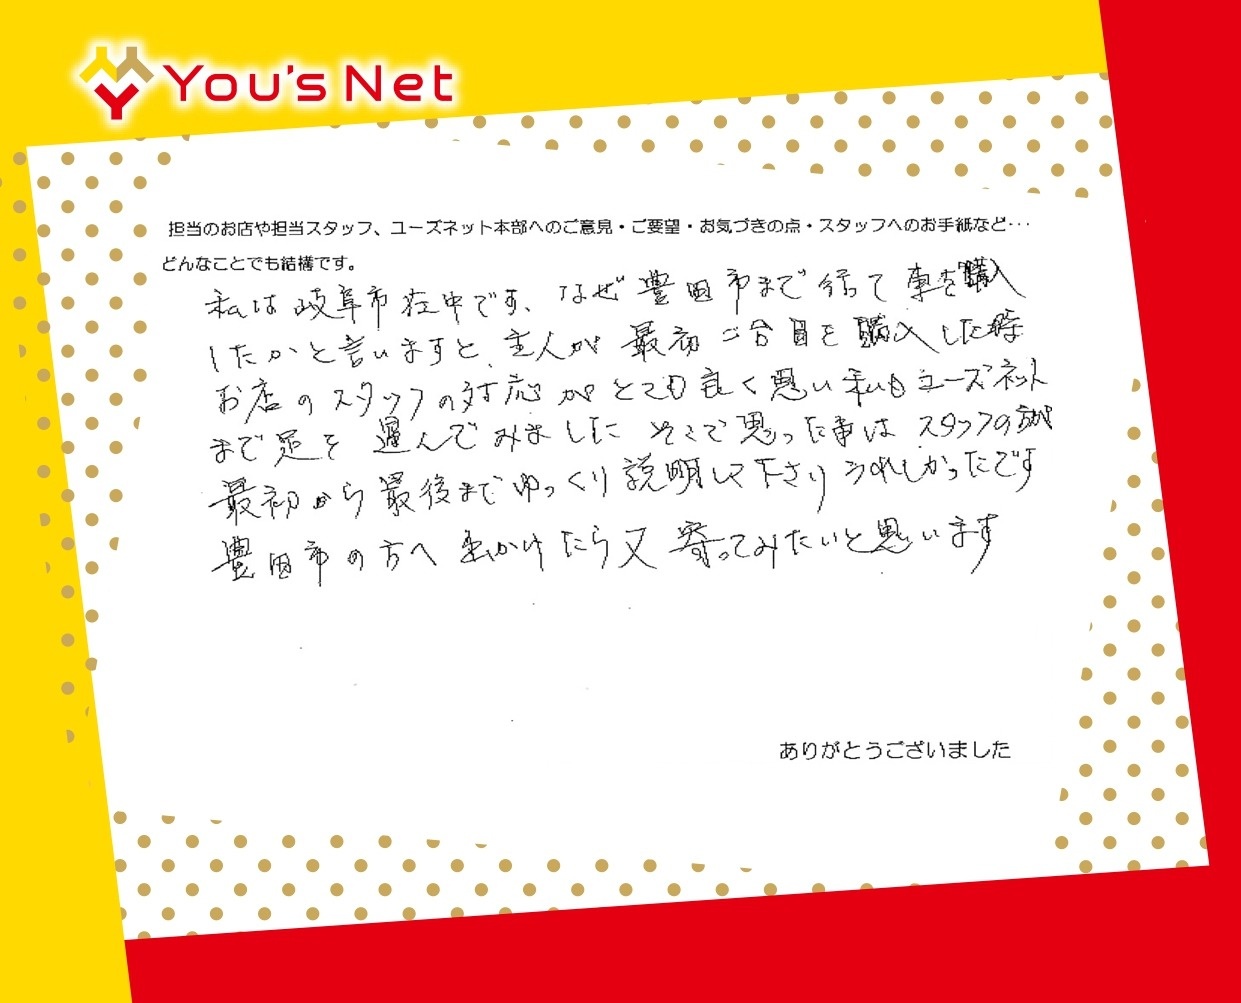 You's Net
担当のお店や担当スタッフ、ユーズネット本部へのご意見・ご要望・お気づきの点・スタッフへのお手紙など･･･
どんなことでも結構です。
私は岐阜市在中です、なぜ豊田市まで行って車を購入
したかと言いますと、主人が最初二台目を購入した時
お店のスタッフの対応がとても良く思い私もユーズネット
まで足を運んでみました そこで思った事は スタッフの方が
最初から最後までゆっくり説明して下さりうれしかったです
豊田市の方へ出かけたら又寄ってみたいと思います
ありがとうございました